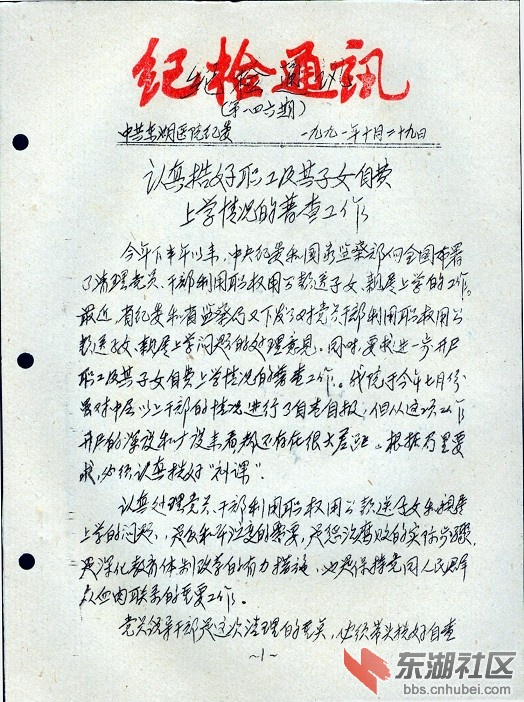 纪检通讯
纪检通讯
(第一四六期)
中共东湖医院纪委 一九九一年十月二十九日
认真搞好职工及其子女自费
上学情况的普查工作
今年下半年以来,中央纪委和国家监察部向全国布署
了清理党员、干部利用职权用公款送子女、亲属上学的工作。
最近,省纪委和省监察厅又下发了对党员干部利用职权用公
款送子女、亲属上学问题的处理意见。同时,要求进一步开展
职工及其子女自费上学情况的普查工作。我院于今年七月份
虽对中层以上干部的情况进行了自查自报,但从这项工作
开展的深度和广度来看都还存在很大差距。根据省里要
求,必须认真搞好“补课”。
认真处理党员、干部利用职权用公款送子女和亲属
上学的问题,是反和平演变的需要,是惩治腐败的实际步骤,
是深化教育体制改革的有力措施,也是保持党同人民群
众血肉联系的重要工作。
党员领导干部是这次清理的重点,必须带头搞好自查
~1~
东湖社区
bbs.cnhubei.com